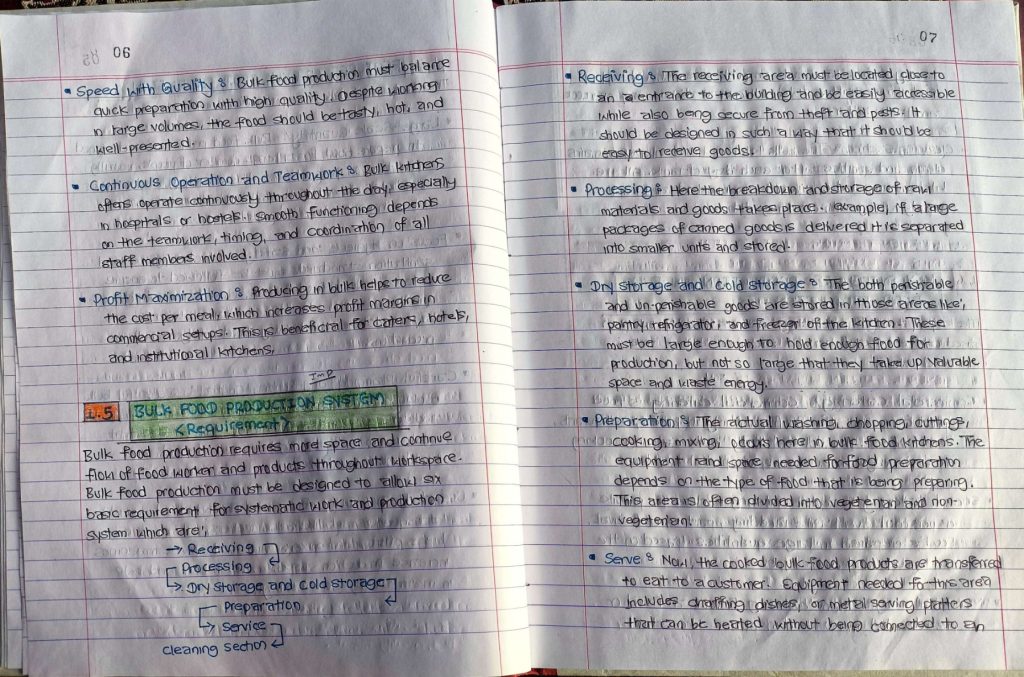 06
• Speed with Quality : Bulk food production must balance
quick preparation with high quality. Despite working
in large volumes, the food should be tasty, hot, and
well-presented.
• Continuous Operation and Teamwork : Bulk kitchens
oftens operate continuously throughout the day, especially
in hospitals or hostels. Smooth functioning depends
on the teamwork, timing, and coordination of all
staff members involved.
• Profit Maximization : Producing in bulk helps to reduce
the cost per meal, which increases profit margins in
commercial setups. This is beneficial for caters, hotels,
and institutional kitchens.
Imp
1.5 BULK FOOD PRODUCTION SYSTEM
<Requirement>
Bulk food production requires more space and continue
flow of food worker and products throughout workspace.
Bulk food production must be designed to allow six
basic requirement for systematic work and production
system which are;
→ Receiving
Processing
→ Dry storage and cold storage
Preparation
→ Service
cleaning section ←
07
• Receiving : The receiving area must be located close to
an a entrance to the building and be easily accessible
while also being secure from theft and pests. It
should be designed in such a way that it should be
easy to receive goods.
• Processing : Here the breakdown and storage of raw
materials and goods takes place. example, if a large
packages of canned goods is delivered it is separated
into smaller units and stored.
• Dry storage and cold storage : The both perishable
and un-perishable goods are stored in those areas like,
pantry, refrigrator, and freezer of the kitchen. These
must be large enough to hold enough food for
production, but not so large that they take up valuable
space and waste energy.
• Preparation : The actual washing, chopping, cuttings,
cooking, mixing, occurs here in bulk food kitchens. The
equipment and space needed for food preparation
depends on the type of food that is being preparing.
This area is often divided into vegeterian and non-
vegeterian.
• Serve : Now, the cooked bulk food products are transferred
to eat to a customer. Equipment needed for this area
includes chaffing dishes, or metal serving platters
that can be heated without being connected to an